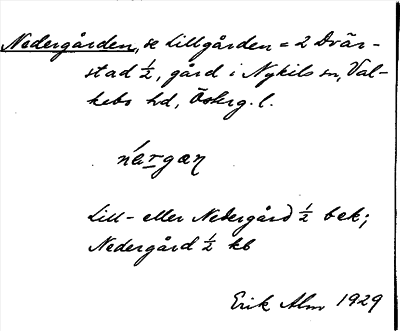 Nedergården, se Lillgården = 2 Dvär-
stad ½, gård i Nykils sn, Val-
kebo hd, Österg. l.
Lill- eller Nedergård ½ bek;
Nedergård ½ kb
Erik Alm 1929